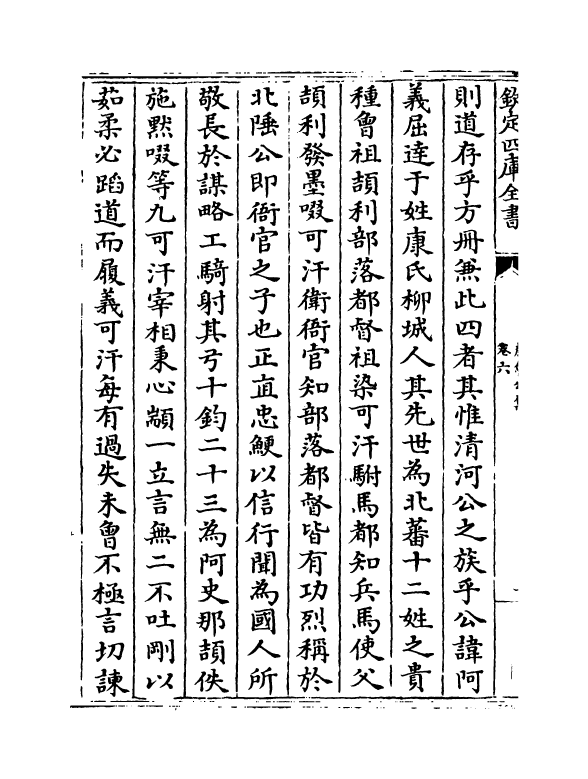 欽定四庫全書
卷六
則道存乎方冊兼此四者其惟清河公之族乎公諱阿
義屈達于姓康氏柳城人其先世為北蕃十二姓之貴
種曾祖頡利部落都督祖染可汗駙馬都知兵馬使父
頡利發墨啜可汗衛衙官知部落都督皆有功烈稱於
北陲公即衙官之子也正直忠鯁以信行聞為國人所
敬長於謀略工騎射其弓十鈞二十三為阿史那頡佚
施默啜等九可汗宰相秉心顓一立言無二不吐剛以
茹柔必蹈道而履義可汗每有過失未曾不極言切諫